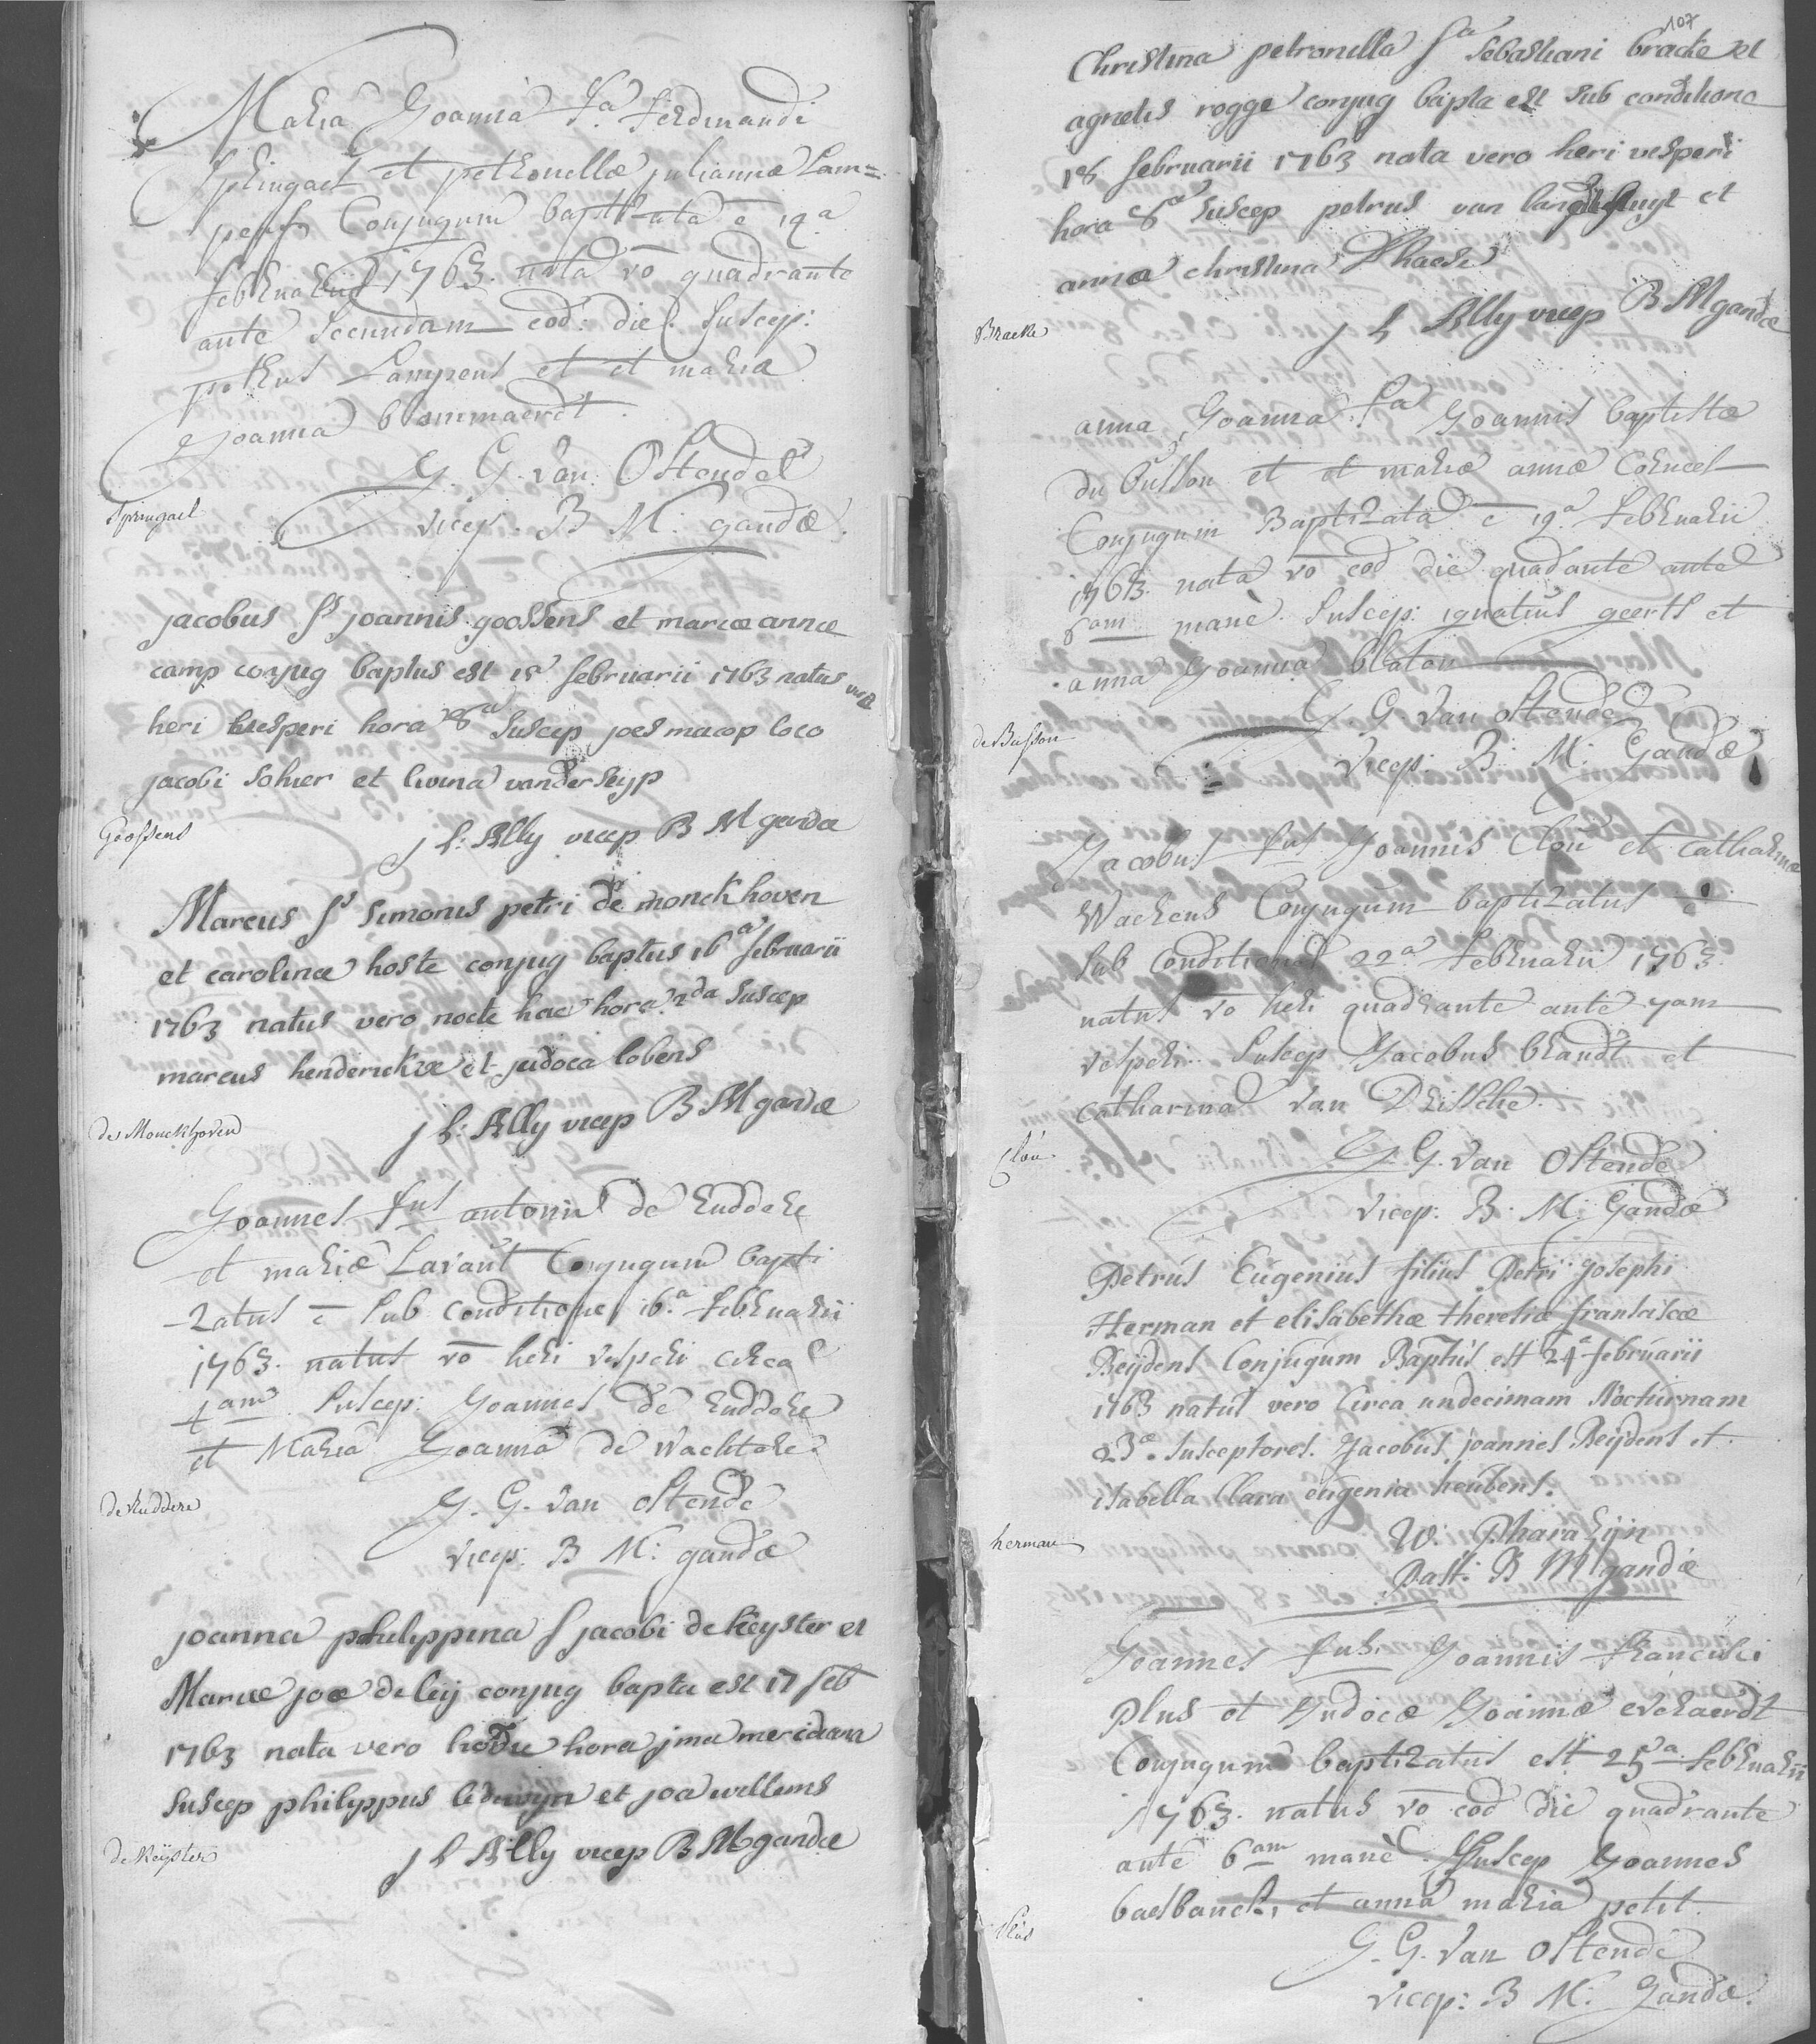 Maria Joanna f.a ferdinandi
Springael et petronellæ julianna Lam=
pens Conjugum baptizata ē 12.a
februarii 1763. nata vō quadrante
ante secundam eod: die. Suscep:
petrus Lampens et et maria
Joanna blommaerdt.
G. G. Van Ostende
Springael
vicep. B M: gandæ.
jacobus fs joannis goossens et mariæ annæ
camp conjug baptus est 15a februarii 1763 natus vero
heri vesperi hora 8a suscep joes macop loco
jacobi sohier et livina vander
Goossens
J L: Ally vicep B M gandæ
Marcus fs simonis petri de monckhoven
et carolinæ hoste conjug baptus 16a februarii
1763 natus vero nocte hac hora 2da suscep
marcus henderickx et judoca lobens
de Monckhoven
J L: Ally vicep B M gandæ
Joannes fus antonii de Ruddere
et mariæ Lavaut Conjugum bapti
zatus ē sub conditione 16.a februarii
1763. natus vō heri vesperi circa
4am Suscep: Joannes de Ruddere
et Maria Joanna de Wachtere.
de Ruddere
G. G. Van Ostende
Vicep: B M: gandæ
joanna philippina f jacobi de keyster et
Mariæ joæ de leij conjug bapta est 17 feb
1763 nata vero hodie hora jma meridiana
suscep philippus et joa willems
de Keyster
J L Ally vicep B M gandæ
107
Christina petronilla fa Sebastiani bracke et
agnetis rogge conjug bapta est sub conditione
18 februarii 1763 nata vero heri vesperi
hora 8a suscep petrus van et
anna christina D'haese
Bracke
J L Ally vicep B M gandæ
anna Joanna fa Joannis baptistæ
du Buisson et et mariæ annæ
Conjugum Baptizata ē 19.a februarii
1763. nata vō eod die quadante ante
8am manè. Suscep: ignatius geerts et
anna Joanna blaton
G. G. Van Ostende
de Busson
Vicep: B: M: Gandæ
Jacobus fus Joannis Cloú et catharinæ
Wackens Conjugum baptizatus ē
sub Conditione 22.a februarii 1763.
natus vō heri quadrante ante 7am
vesperi. Suscep Jacobus brandt et
catharina van Drissche.
Cloú
G. G. Van Ostende
Vicep: B: M: Gandæ
Petrus Eugenius filius Petri Josephi
Herman et elisabethæ theresiæ fransiscæ
Reijdens Conjugum Baptus est 24a februarii
1763 natus vero Circa undecimam Nocturnam
23æ. susceptores. Jacobus joannes Reijdens et
isabella Clara eugenia heubens.
herman
W: Pharazijn
Past: B M gandæ
Joannes fus. Joannis Francisci
plus et Judocæ Joannæ everaerdt
Conjugum baptizatus est 25a februarii
1763. natus vō eod die quadrante
ante 6am manè. Suscep Joannes
baesbanck, et anna maria petit.
Plus
G. G. Van Ostende
Vicep: B M: Gandæ.